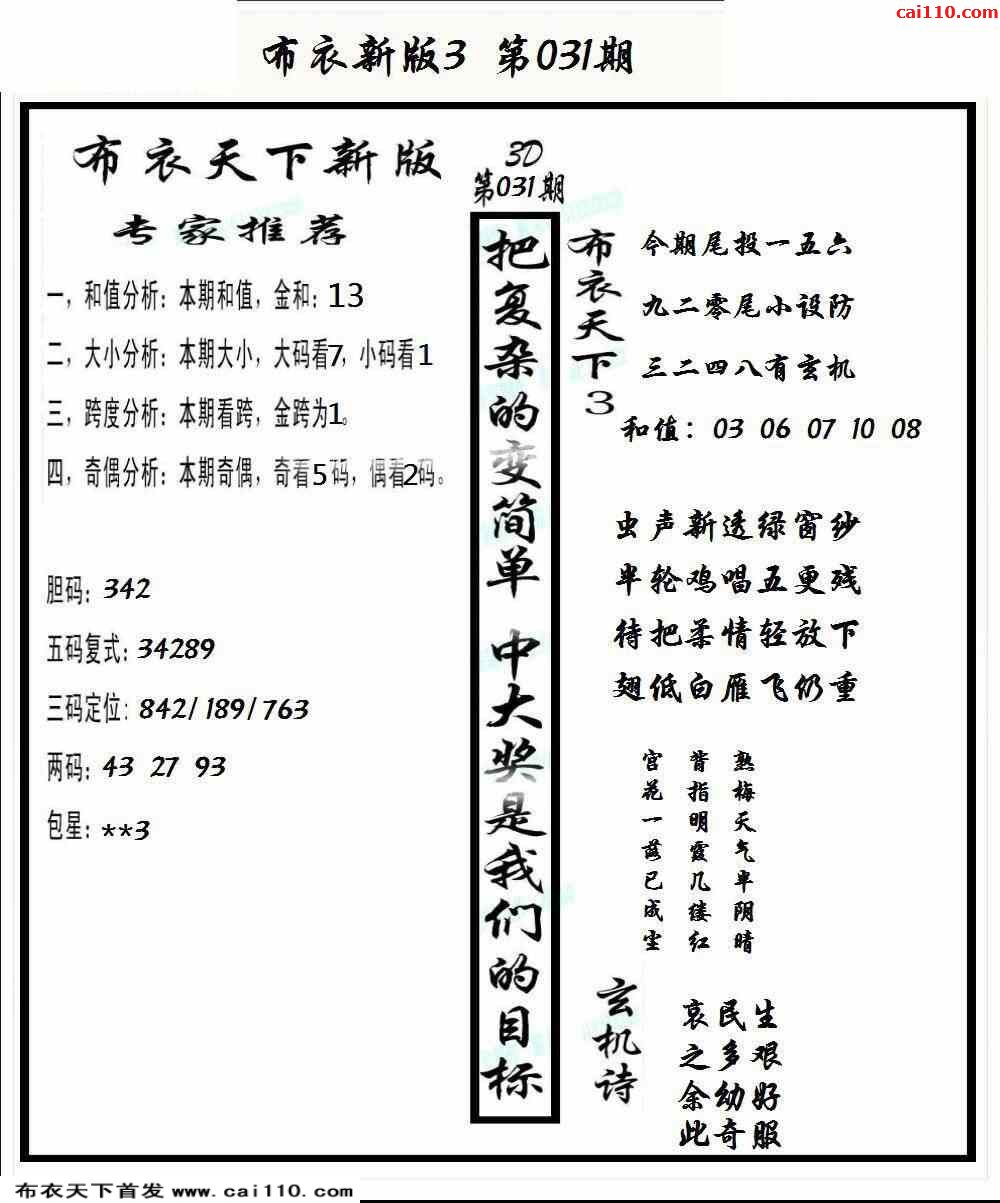 cai110.com
布衣新版3 第031期
布衣天下新版
专家推荐
一，和值分析：本期和值，金和：13
二，大小分析：本期大小，大码看7，小码看1
三，跨度分析：本期看跨，金跨为1。
四，奇偶分析：本期奇偶，奇看5码，偶看2码。
胆码：342
五码复式：34289
三码定位：842/189/763
两码：43 27 93
包星：**3
3D
第031期
把复杂的变简单 中大奖是我们的目标
布衣天下3
今期尾投一五六
九二零尾小设防
三二四八有玄机
和值：03 06 07 10 08
虫声新透绿窗纱
半轮鸡唱五更残
待把柔情轻放下
翅低白雁飞仍重
熟梅天气半阴晴
背指明霞几缕红
宫花一落已成尘
玄机诗
哀民生
之多艰
余幼好
此奇服
布衣天下首发 www.cai110.com